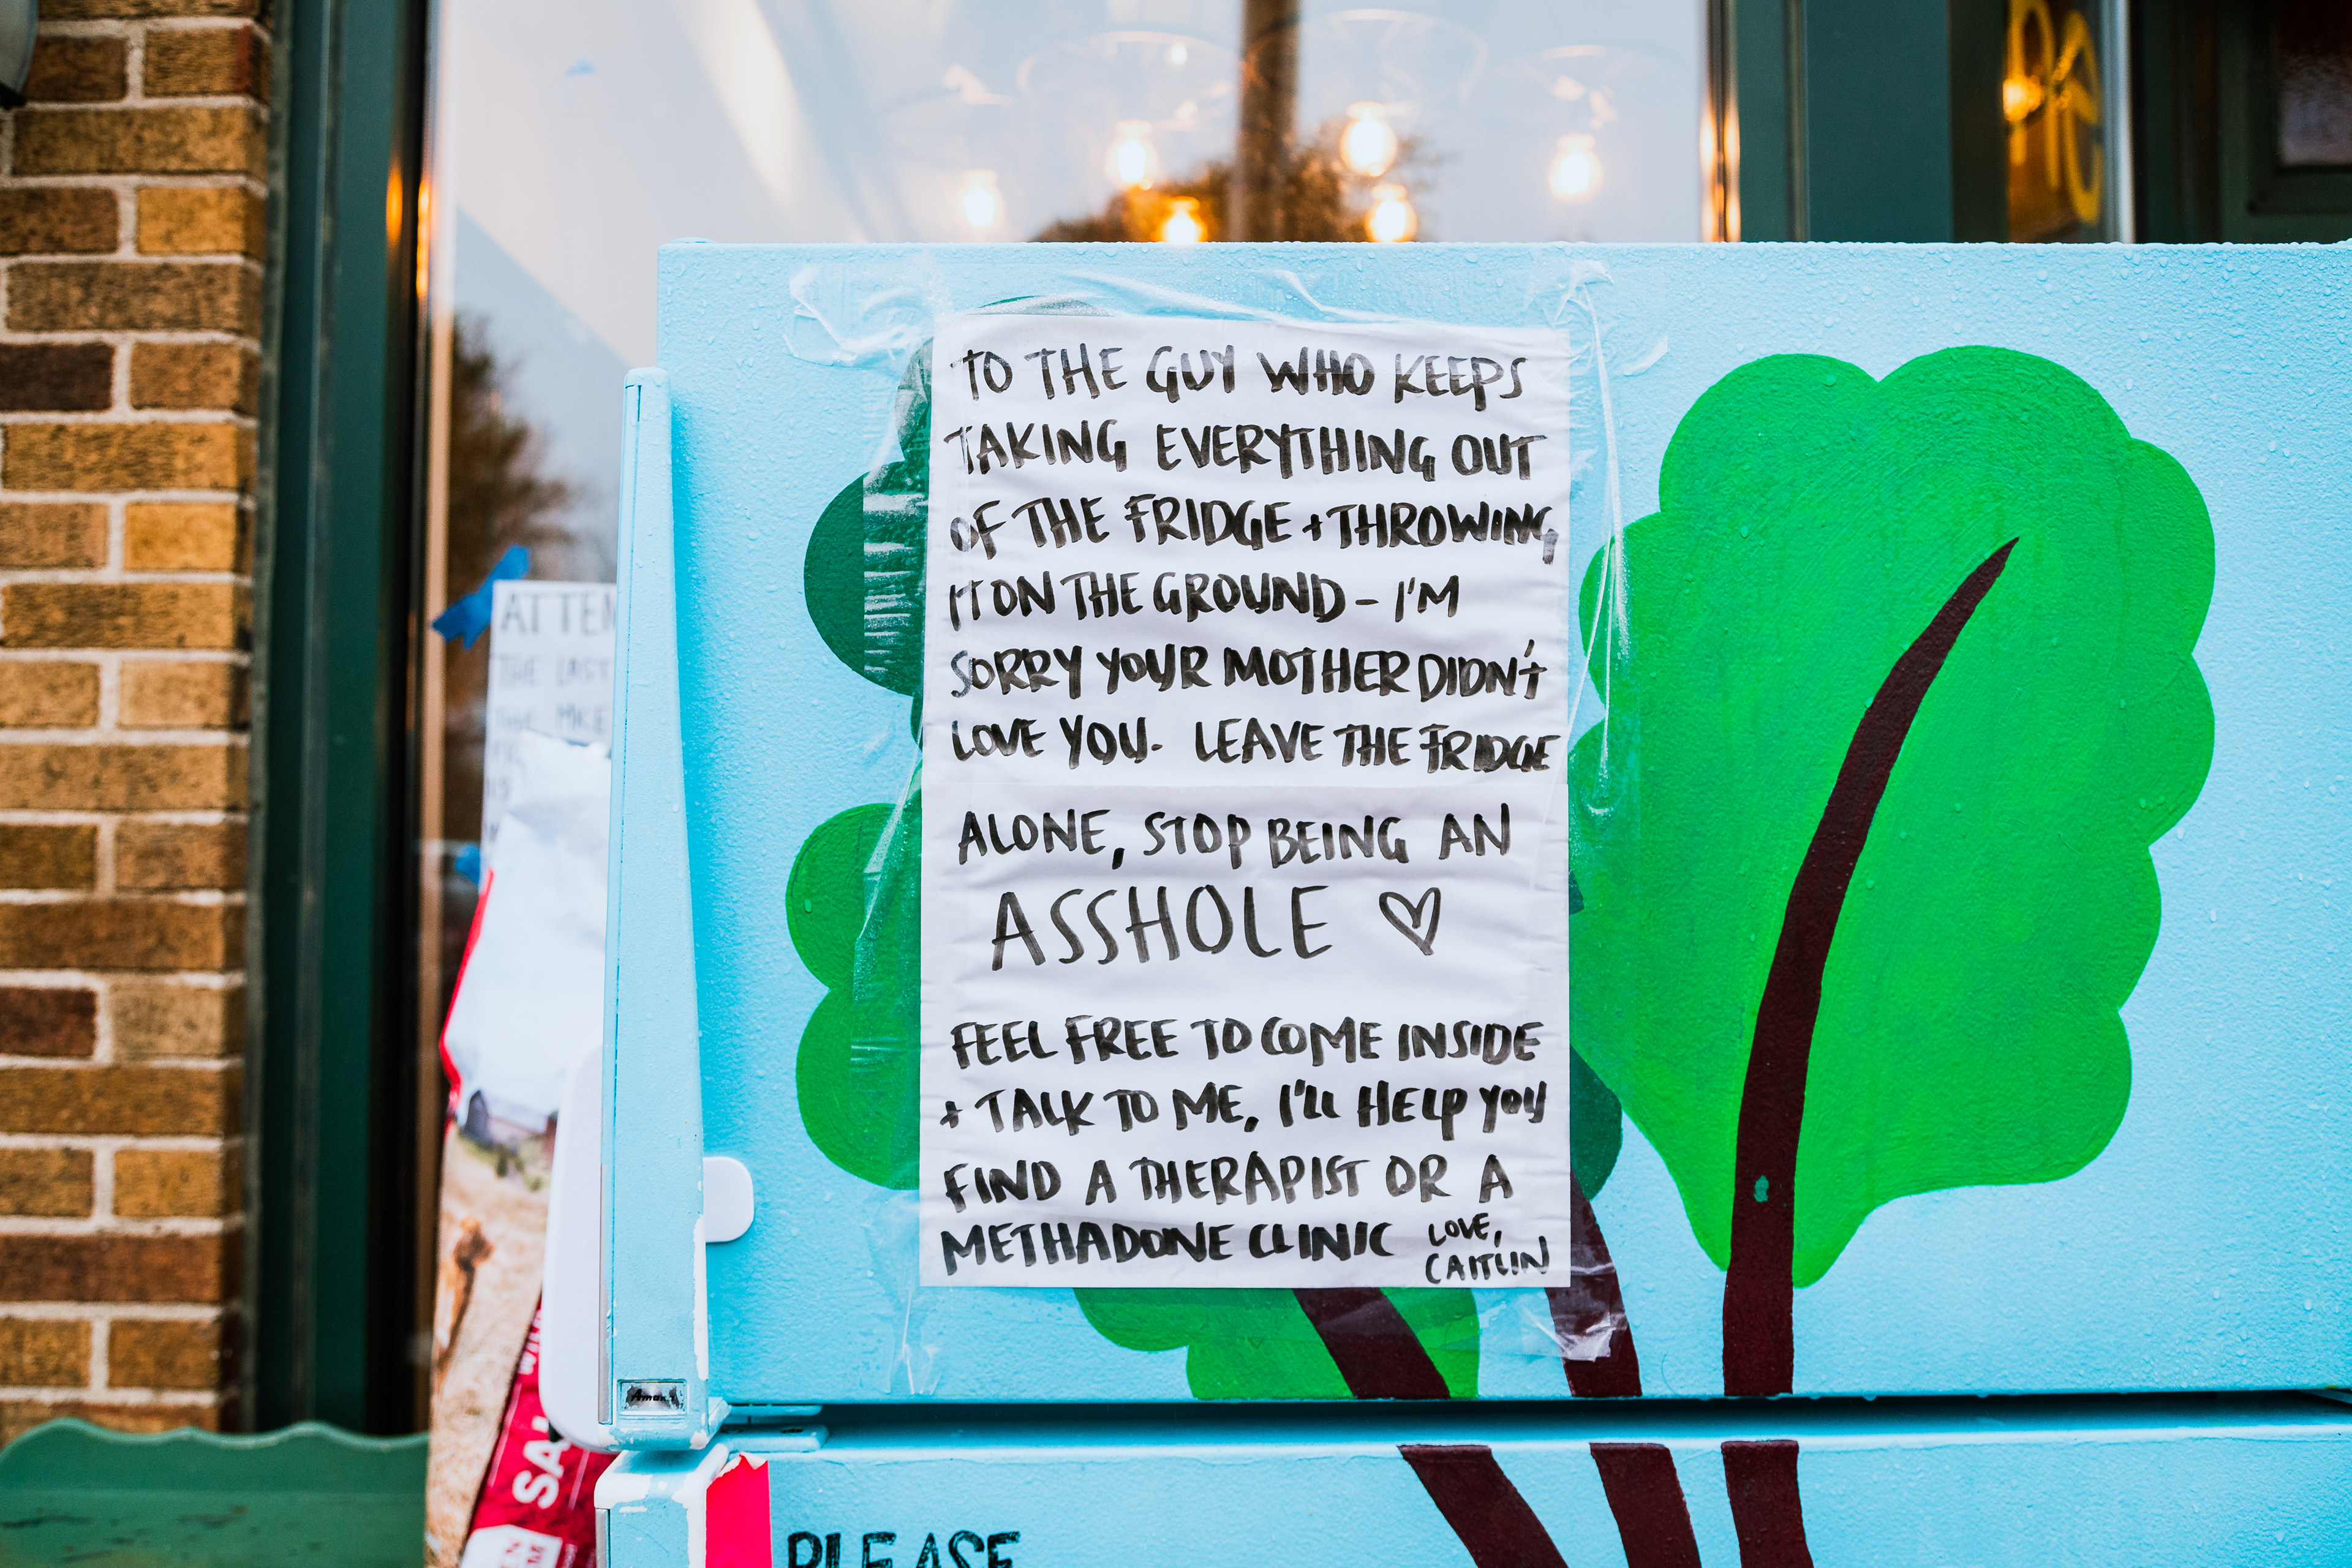 TO THE GUY WHO KEEPS
TAKING EVERYTHING OUT
OF THE FRIDGE + THROWING
IT ON THE GROUND - I'M
SORRY YOUR MOTHER DIDN'T
LOVE YOU. LEAVE THE FRIDGE
ALONE, STOP BEING AN
ASSHOLE ♡
FEEL FREE TO COME INSIDE
+ TALK TO ME, I'LL HELP YOU
FIND A THERAPIST OR A
METHADONE CLINIC LOVE,
CAITLIN
THE LAST
PLEASE